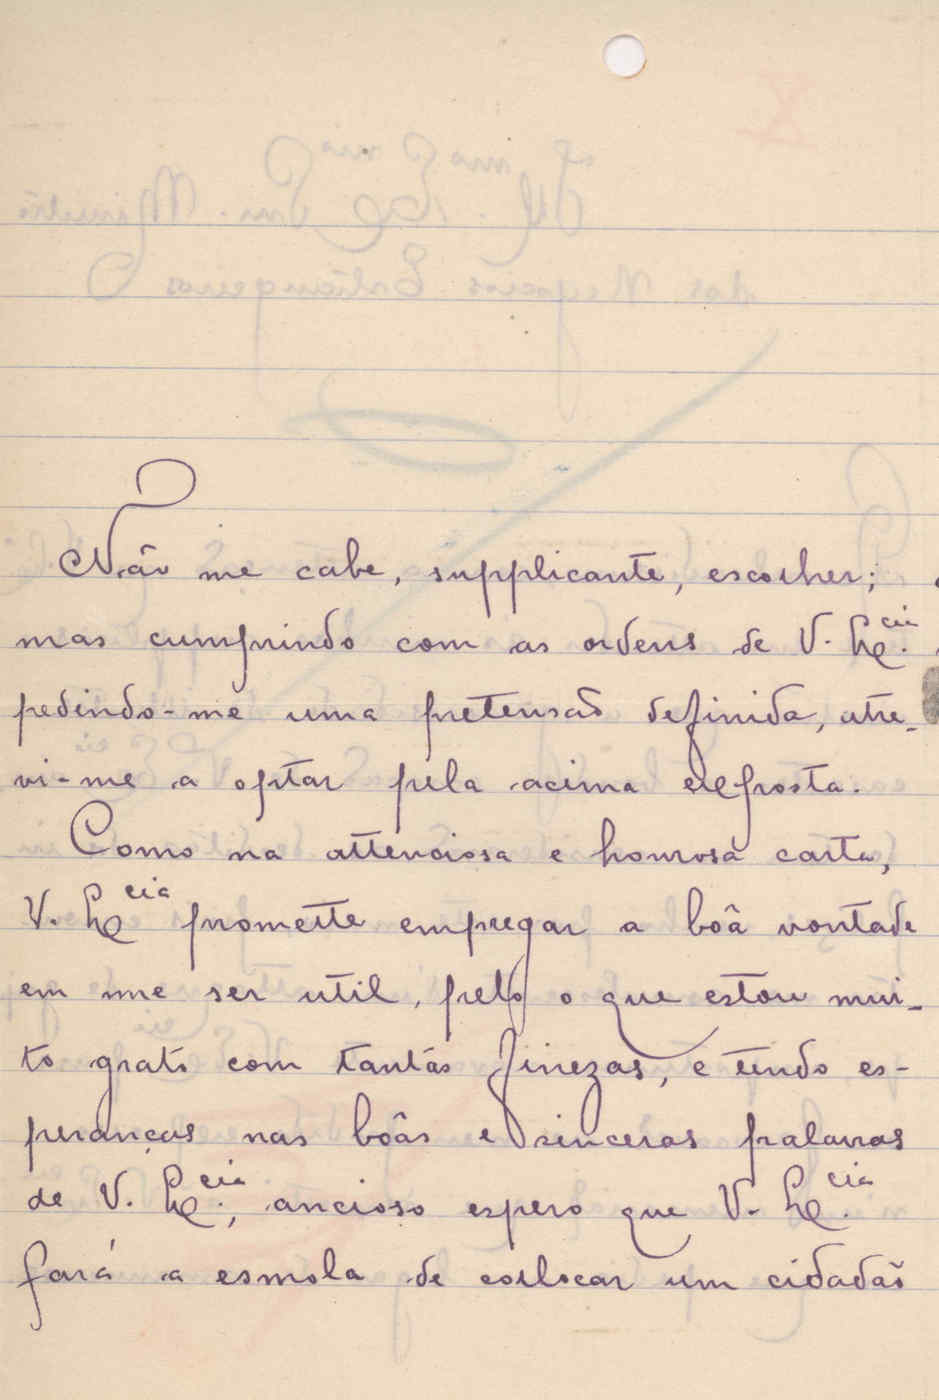 Não me cabe, supplicante, escolher;
mas cumprindo com as ordens de V. Ex.cia
pedindo-me uma pretensão definida, atre-
vi-me a optar pela acima exposta.
Como na attenciosa e honrosa carta,
V. Ex.cia promette empregar a boâ vontade
em me ser util, pelo o que estou mui-
to grato com tantas finezas, e tendo es-
peranças nas boâs e sinceras palavras
de V. Ex.cia, ancioso espero que V. Ex.cia
fará a esmola de collocar um cidadão